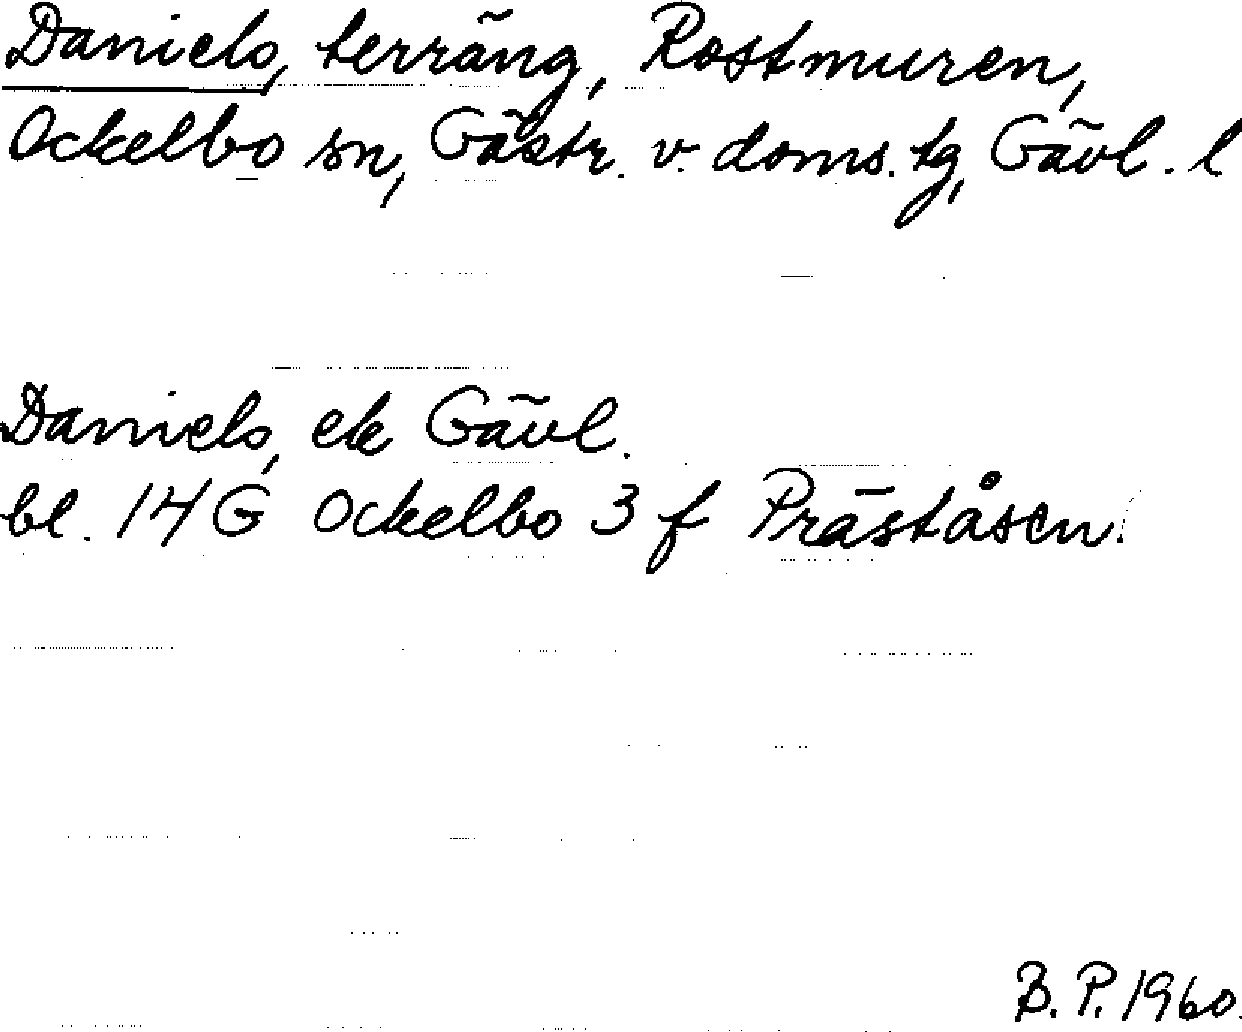 Daniels, terräng, Rostmuren,
Ockelbo sn, Gästr. v. doms. tg, Gävl. l
Daniels, ek Gävl.
bl. 14 G Ockelbo 3 f Präståsen.
B. P. 1960.